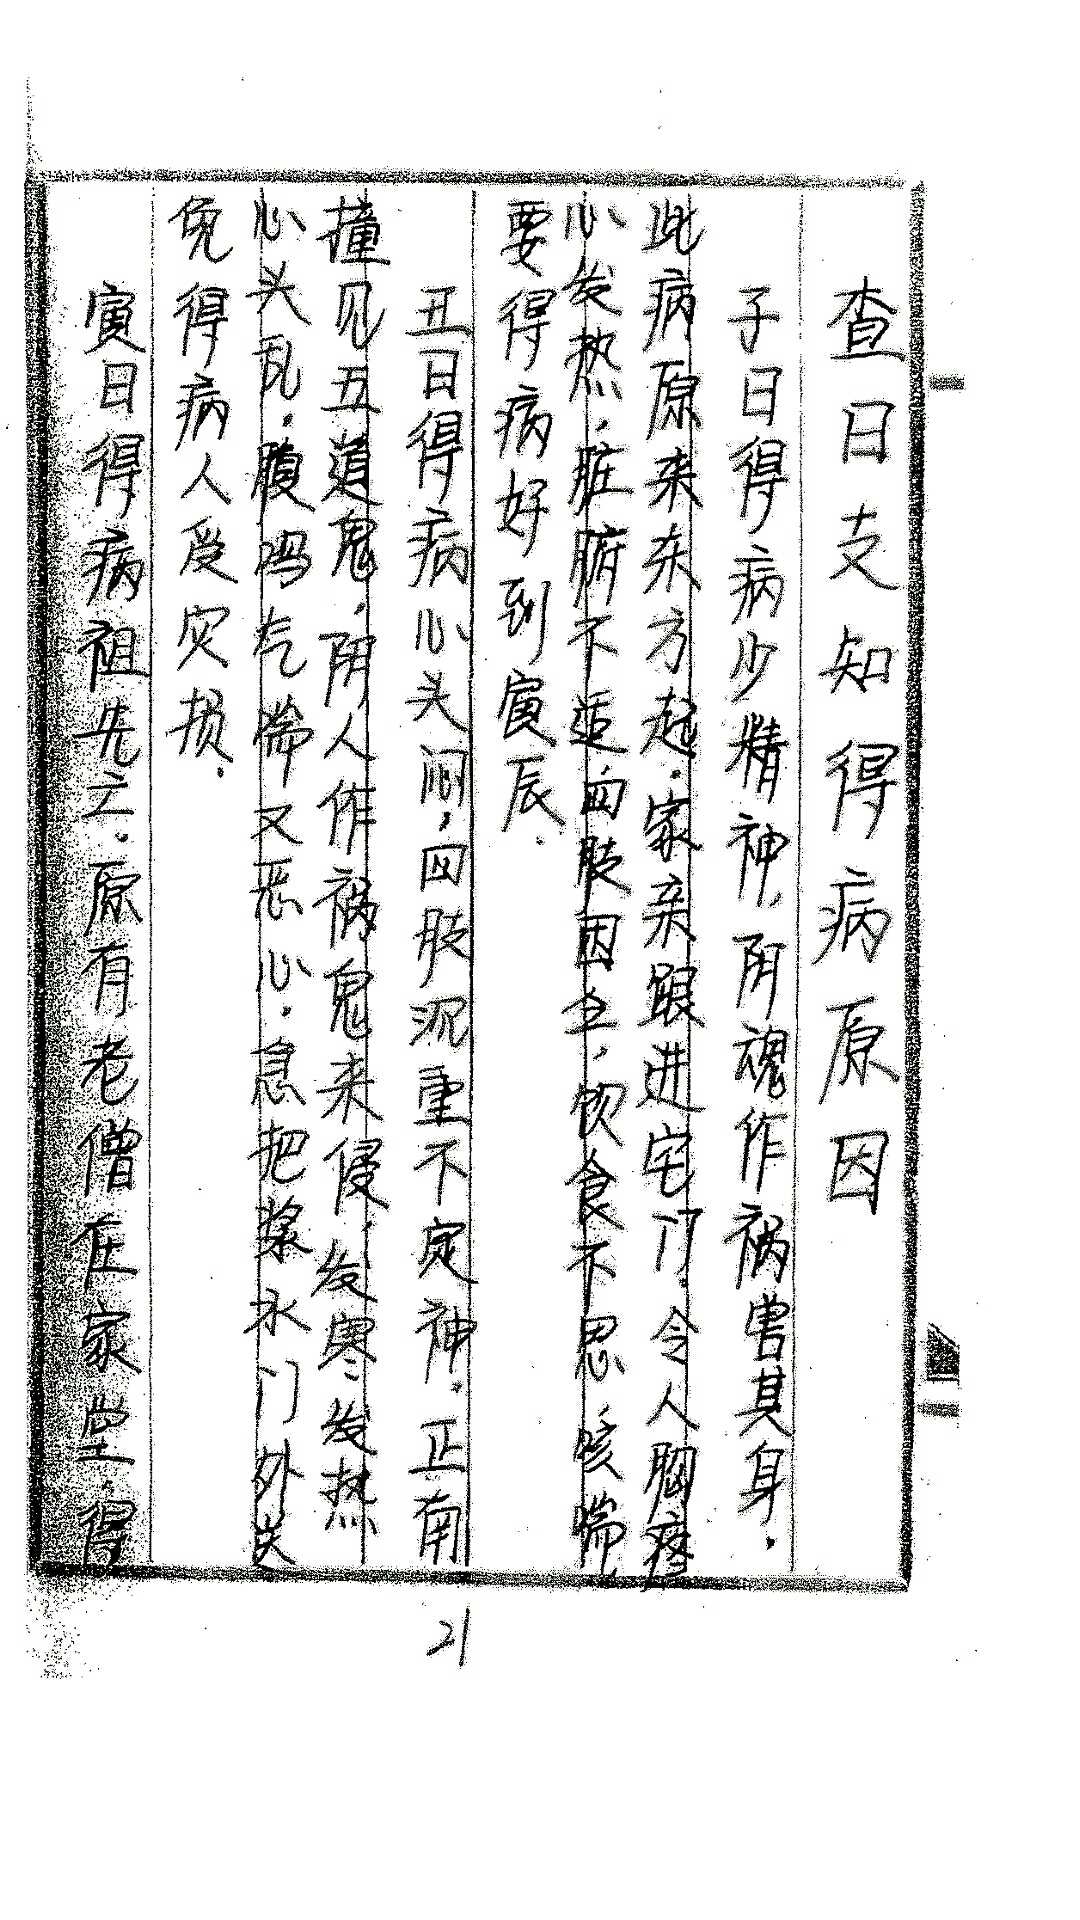 查日支知得病原因
子日得病少精神，阴魂作祸害其身．
此病原来东方起．家亲跟进宅门．令人胸疼
心发热．脏腑不适四肢困全，饮食不思，咳喘
要得病好到寅辰．
丑日得病心头闷，四肢沉重不定神．正南
撞见五道鬼，阴人作祸鬼来侵，发寒发热
心头乱．腹鸣气喘又恶心．急把浆水门外送
免得病人受灾损．
寅日得病祖先之．原有老僧在家堂．得
21